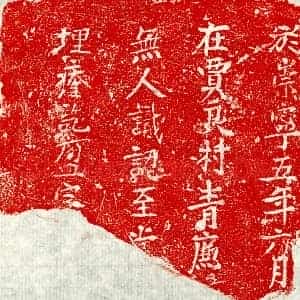 於崇寧五年六月
在賈良村青
無人識認至
埋瘞訖